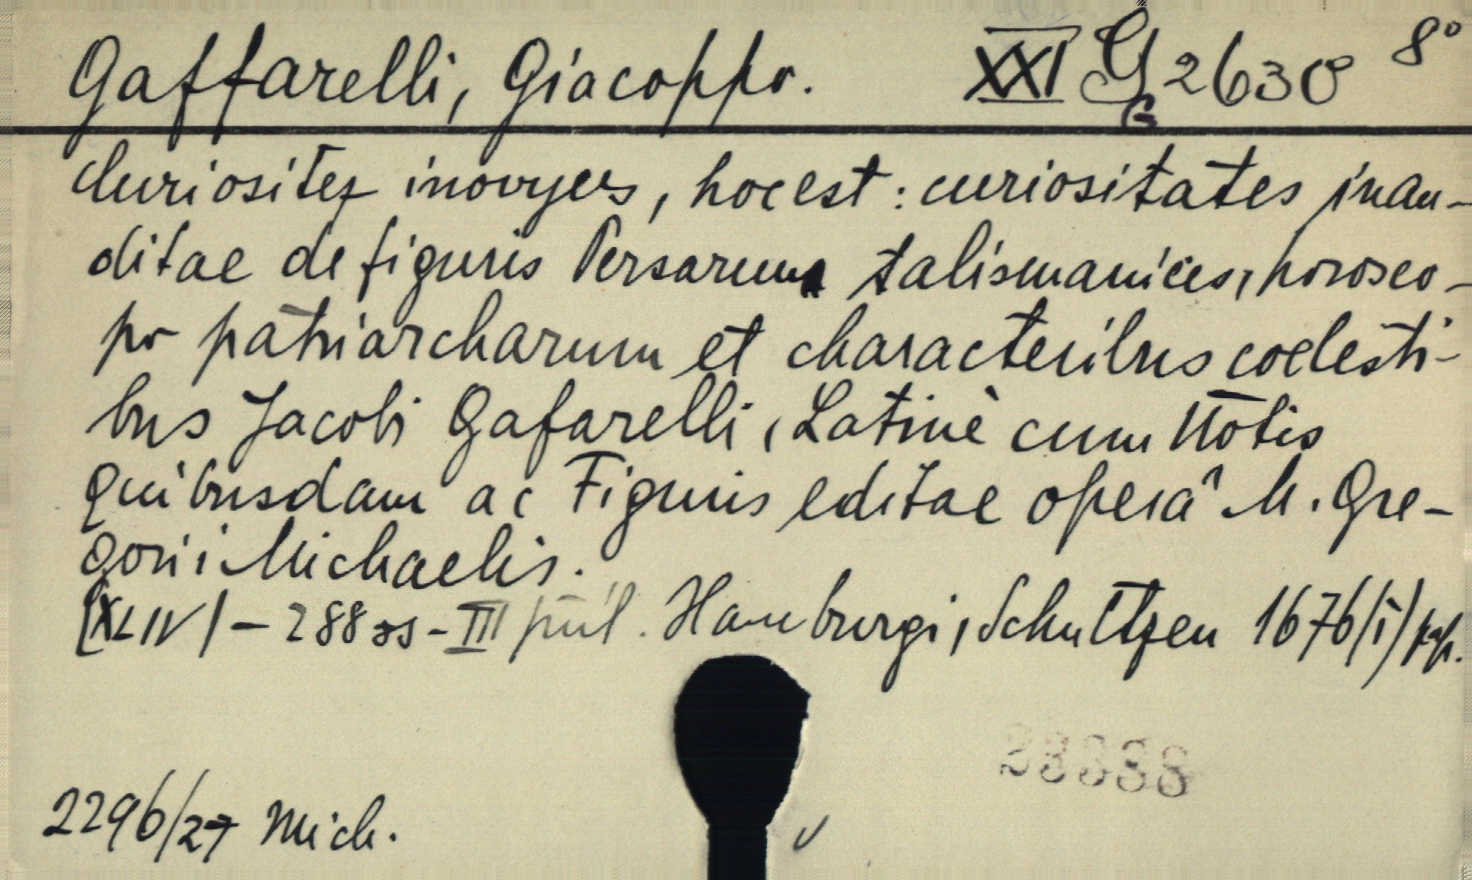 Gaffarelli, Giacoppo. XXI G 2630 8°
G
Curiositez inovyes, hoc est: curiositates inau-
ditae de figuris Persarum talismanices, horosco-
po patriarcharum et characteribus coelesti-
bus Jacobi Gafarelli, Latinè cum Notis
quibusdam ac Figuris editae operâ M. Gre-
gorii Michaelis.
[XLIV] - 288 ss - III Hamburgi, Schultzen 1676/i)
23338
2296/27 Mich.